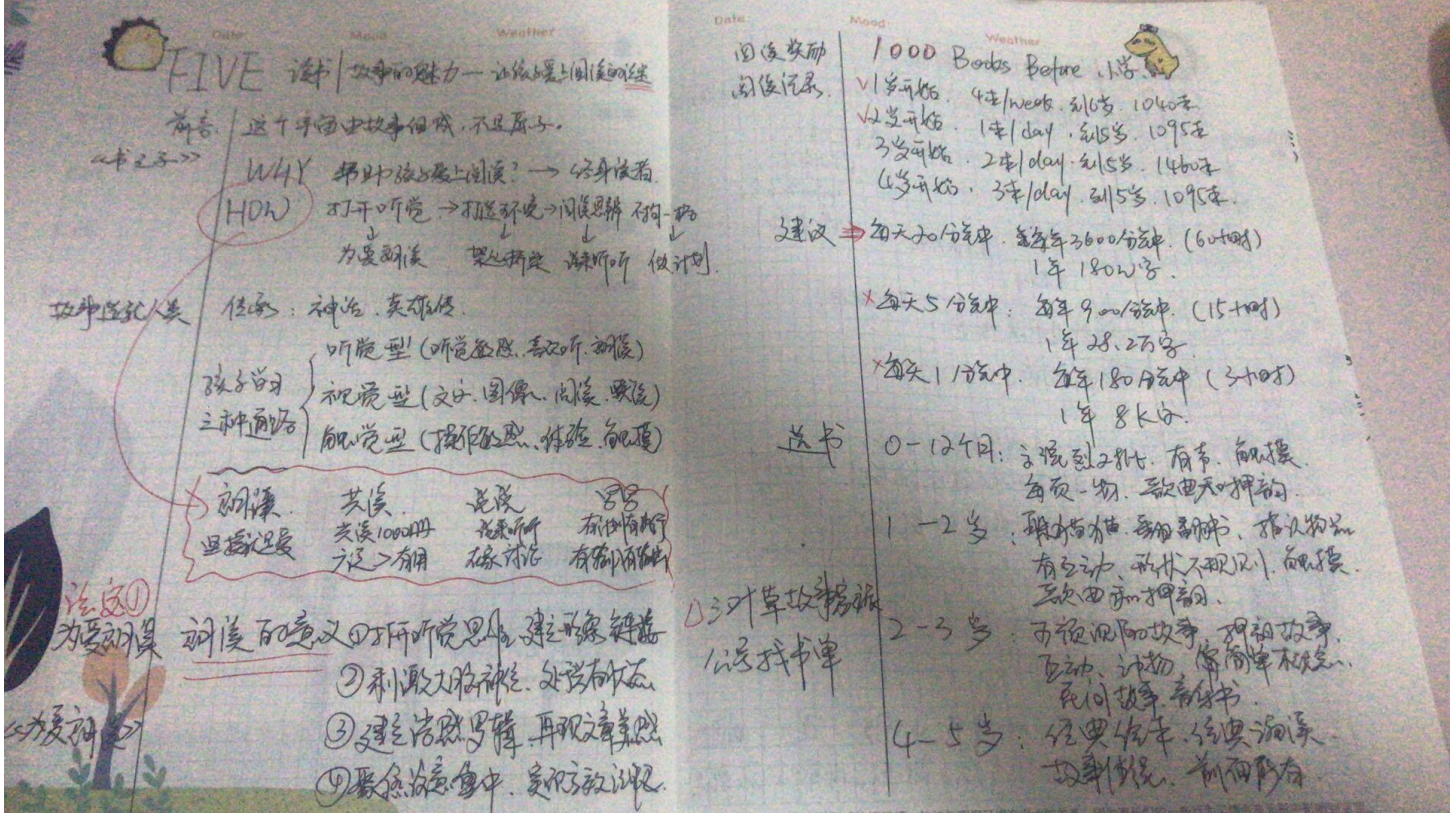 Date Mood Weather
FIVE 读书 | 故事的魅力 — 让孩子爱上阅读的秘密
前言 这个宇宙由故事组成，不是原子。
WHY 帮助孩子爱上阅读？→ 终身读者
HOW 打开听觉 → 打造环境 → 阅读思辨 不拘一格
为爱朗读 说来听听 做计划
故事造就人类 传承：神话、英雄传
孩子学习三种通路
听觉型（听觉敏感、喜欢听、朗读）
视觉型（文字、图像、阅读、默读）
触觉型（操作敏感、体验、触摸）
朗读 共读 说说 写写
共读1000册 说来听听
有用 讨论
法宝①
为爱朗读 朗读的意义 ①打开听觉思维 建立形象链接
②刺激大脑神经、处活跃状态
③建立语感逻辑、再现文章美感
④聚焦注意集中、实现高效记忆
《为爱朗读》
Date Mood Weather
阅读奖励
阅读记录
1000 Books Before 小学
√1岁开始、4本/week、到6岁、1040本
√2岁开始、1本/day、到5岁、1095本
3岁开始、2本/day、到5岁、1460本
4岁开始、3本/day、到5岁、1095本
建议 ⇒ 每天20分钟、每年3600分钟、（60小时）
1年180W字
×每天5分钟：每年900分钟（15小时）
1年28.2万字
×每天1分钟、每年180分钟（3小时）
1年8K字
选书 0-12个月： 有声、触摸
每页一物、歌曲 押韵
1-2岁：躲猫猫、翻翻书、指认物品
有互动、形状不规则、触摸
歌曲 押韵
2-3岁：可预测的故事、押韵故事
互动、动物、简单
民间故事、
3叶草故事家族
公号找书单
4-5岁：经典绘本、经典诵读
故事